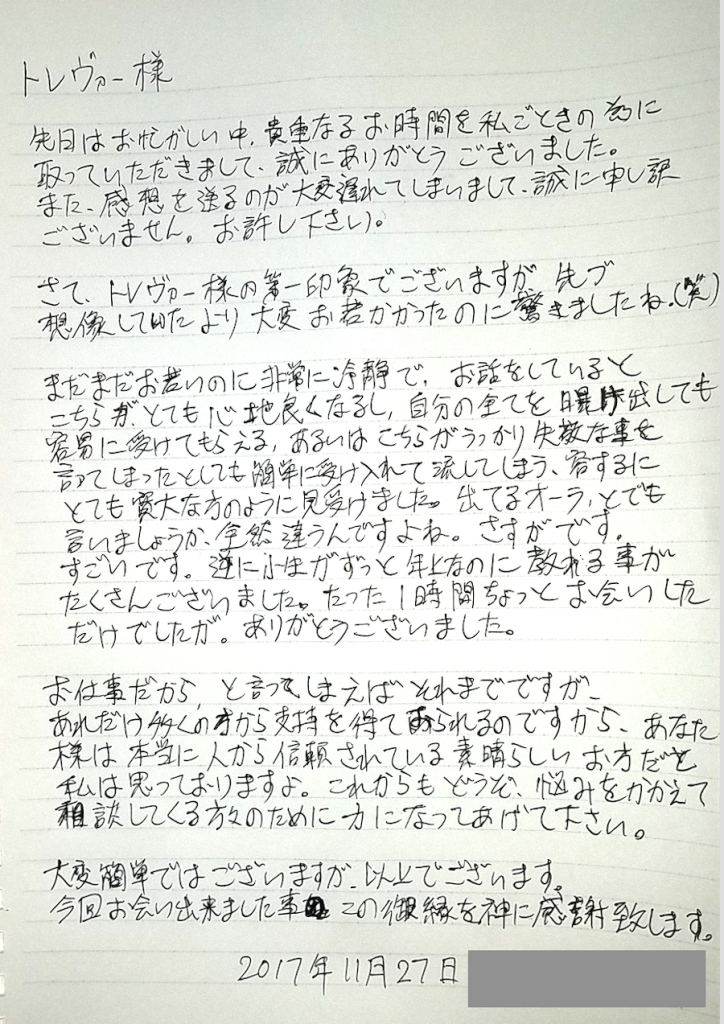 トレヴァー様
先日はお忙がしい中、貴重なるお時間を私ごときの為に
取っていただきまして、誠にありがとうございました。
また、感想を送るのが大変遅れてしまいまして、誠に申し訳
ございません。お許し下さい)。
さて、トレヴァー様の第一印象でございますが 先づ
想像してゐたより 大変 お若かかったのに驚きましたね。(笑)
まだまだお若いのに非常に冷静で、お話をしていると
こちらが、とても心地良くなるし、自分の全てを曝け出しても
容易に受けてもらえる、あるいはこちらがうっかり失敬な事を
言ってしまったとしても簡単に受け入れて流してしまう、要するに
とても寛大な方のように見受けました。出てるオーラ、とでも
言いましょうか、全然違うんですよね。さすがです。
すごいです。逆に小生がずっと年上なのに教れる事が
たくさんございました。たった1時間ちょっとお会いした
だけでしたが。ありがとうございました。
お仕事だから、と言ってしまえばそれまでですが、
あれだけ多くの方から支持を得ておられるのですから、あなた
様は本当に人から信頼されている素晴らしいお方だと
私は思っておりますよ。これからもどうぞ、悩みをかかえて
相談してくる方々のために力になってあげて下さい。
大変簡単ではございますが、以上でございます。
今回お会い出来ました事 この御縁を神に感謝致します。
2017年11月27日